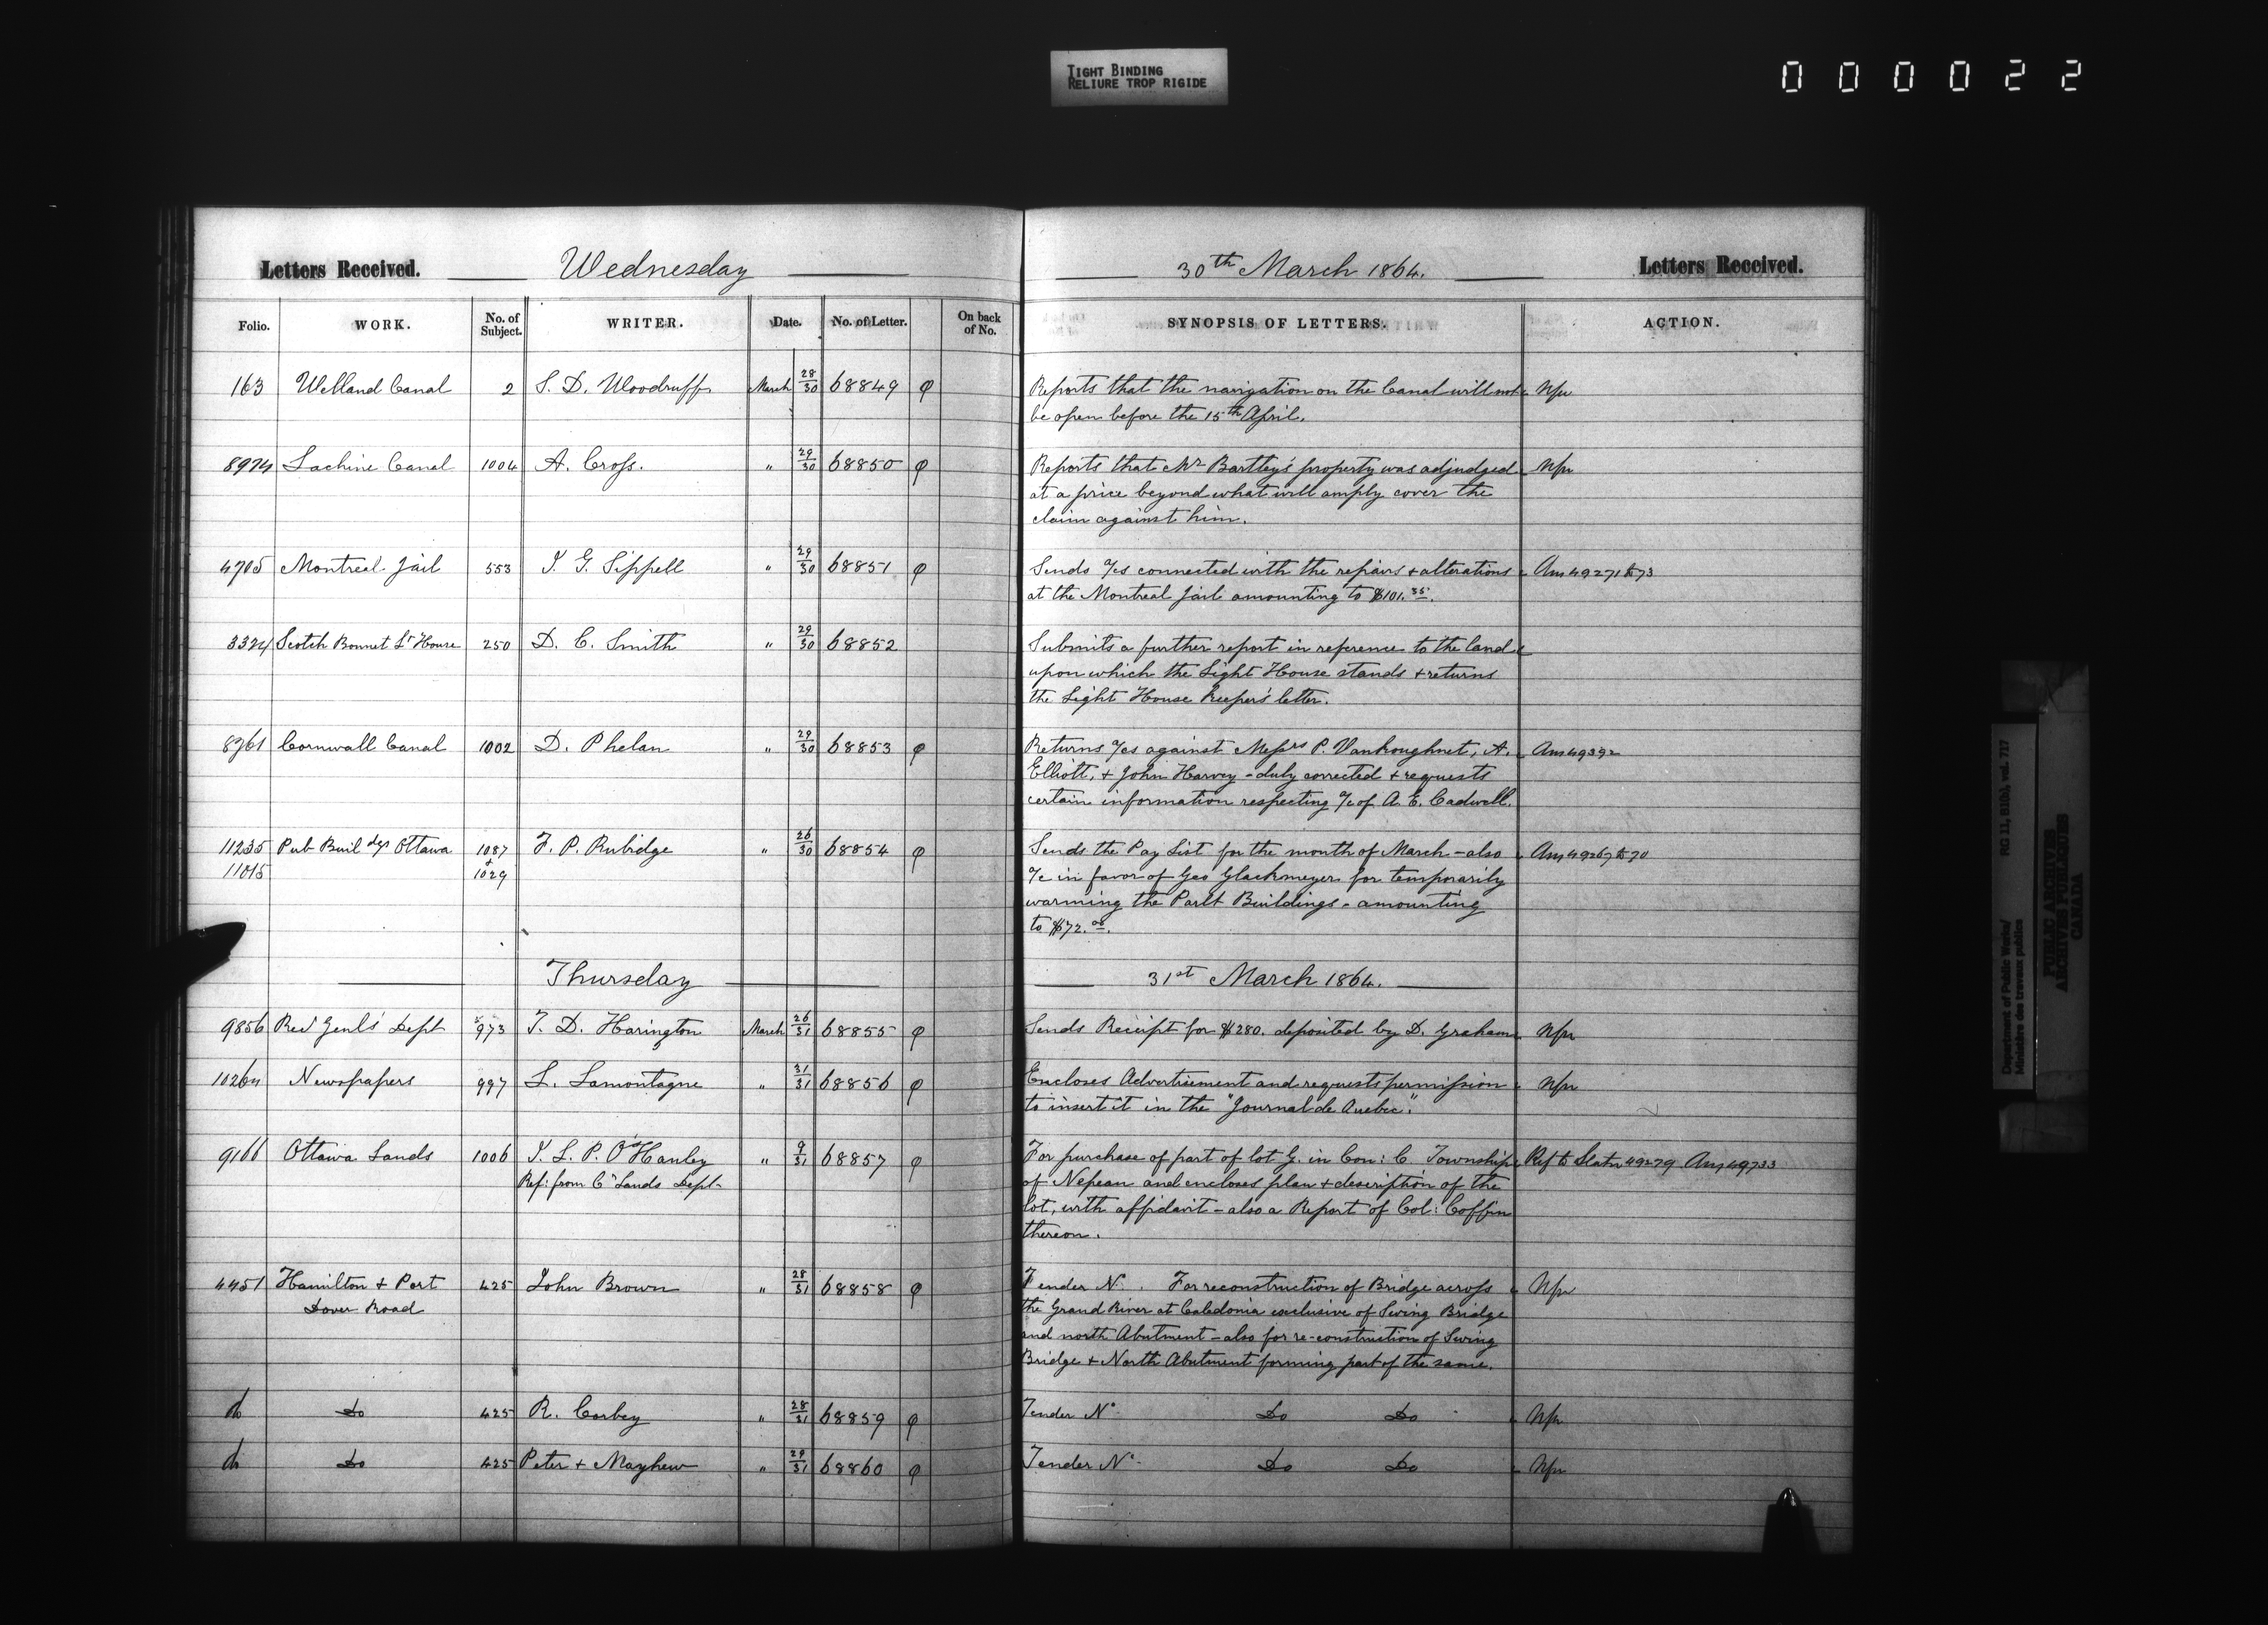 TIGHT BINDING
RELIURE TROP RIGIDE
000022
Letters Received. Wednesday 30th March 1864. Letters Received.
Folio. WORK. No. of Subject. WRITER. Date. No. of Letter. On back of No. SYNOPSIS OF LETTERS. ACTION.
163 Welland Canal 2 S. D. Woodruff March 28/30 68849 φ Reports that the navigation on the Canal will not Npu
be open before the 15th April.
8974 Lachine Canal 1004 A. Cross. " 29/30 68850 φ Reports that Mr Bartley's property was adjudged Npu
at a price beyond what will amply cover the
claim against him.
4705 Montreal Jail 553 J. G. Sippell " 29/30 68851 φ Sends a/cs connected with the repairs + alterations Ans 49271 to 73
at the Montreal Jail amounting to $101.35.
3324 Scotch Bonnet Lt House 250 D. C. Smith " 29/30 68852 Submits a further report in reference to the land
upon which the Light House stands + returns
the Light House Keeper's letter.
8761 Cornwall Canal 1002 D. Phelan " 29/30 68853 φ Returns a/cs against Messrs P. Vankoughnet, A. Ans 49392
Elliott, + John Harvey - duly corrected + requests
certain information respecting a/c of A. E. Cadwell.
11235 Pub Buildgs Ottawa 1087 F. P. Rubidge " 26/30 68854 φ Sends the Pay List for the month of March - also Ans 49267 to 70
11015 + 1029 a/c in favor of Geo Glackmeyer for temporarily
warming the Parlt Buildings - amounting
to $72.00.
Thursday 31st March 1864.
9856 Recr Genls' Dept 973 T. D. Harington March 26/31 68855 φ Sends Receipt for $280. deposited by D. Graham Npu
10264 Newspapers 997 L. Lamontagne " 31/31 68856 φ Encloses Advertisement and requests permission Npu
to insert it in the "Journal de Quebec".
9166 Ottawa Lands 1006 J. L. P. O'Hanley " 9/31 68857 φ For purchase of part of lot G. in Con: C. Township Ref to Slater 49279 Ans 49733
Ref: from C. Lands Dept- of Nepean and encloses plan + description of the
lot, with affidavit - also a Report of Col: Coffin
thereon.
4451 Hamilton + Port 425 John Brown " 28/31 68858 φ Tender No. For reconstruction of Bridge across Npu
Dover Road the Grand River at Caledonia exclusive of Swing Bridge
and north Abutment - also for re-construction of Swing
Bridge + North Abutment forming part of the same.
do Do 425 R. Corbey " 28/31 68859 φ Tender No. Do Do Npu
do Do 425 Peter + Mayhew " 29/31 68860 φ Tender No. Do Do Npu
Department of Public Works/ RG 11, B1(b), vol. 717
Ministère des travaux publics
PUBLIC ARCHIVES
ARCHIVES PUBLIQUES
CANADA